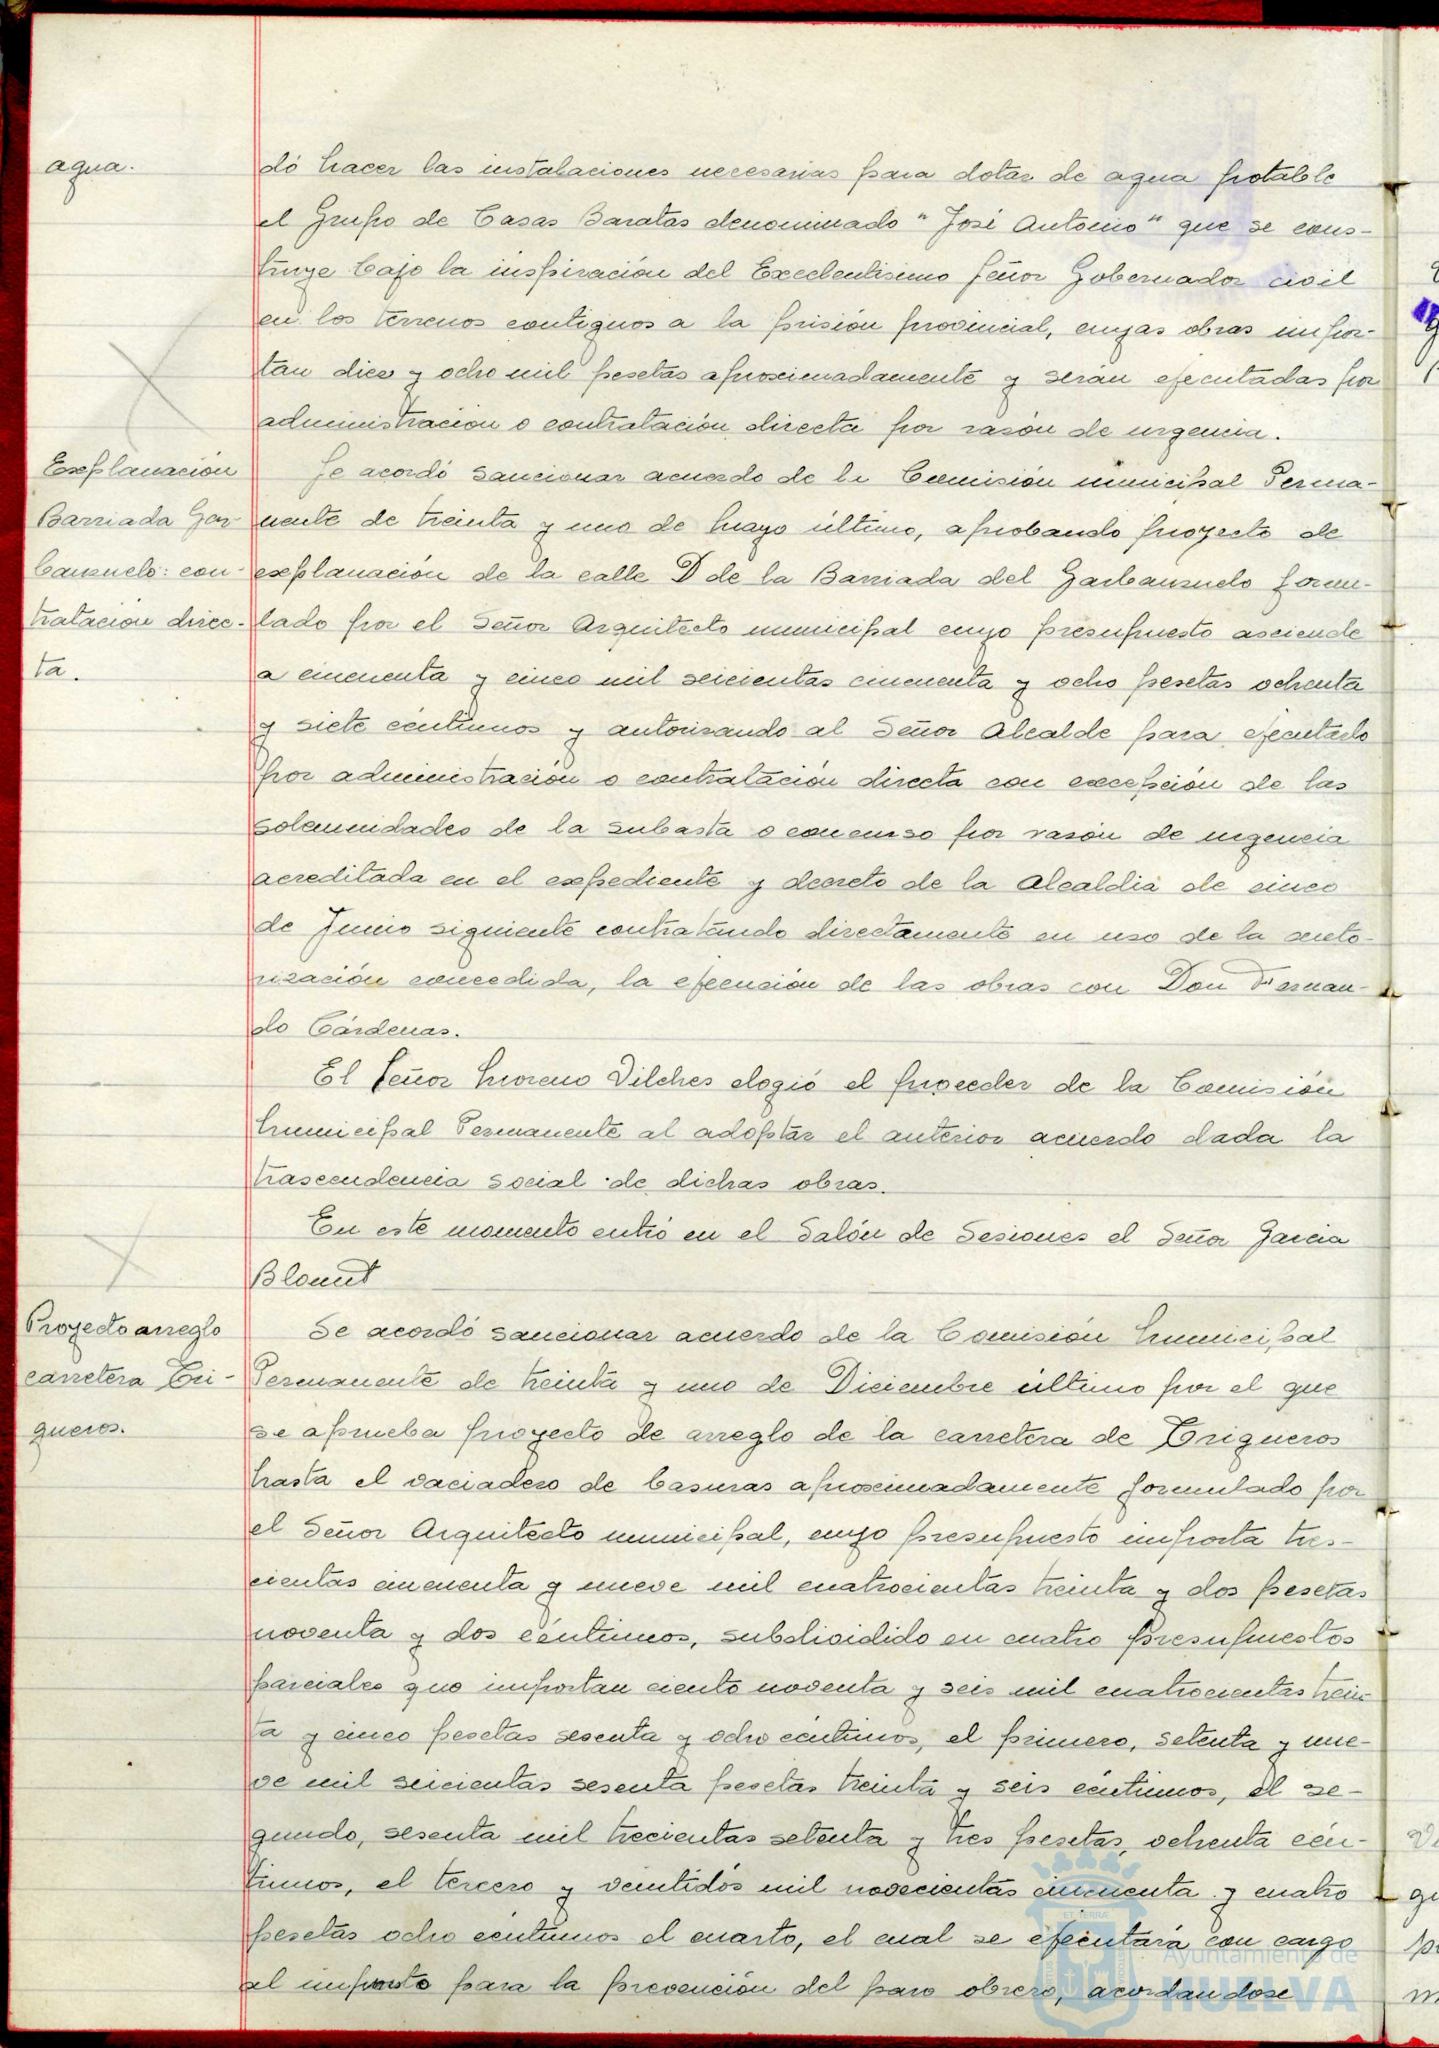 agua.
dó hacer las instalaciones necesarias para dotar de agua potable
el Grupo de Casas Baratas denominado "José Antonio" que se cons-
truye bajo la inspiración del Excelentisimo Señor Gobernador civil
en los terrenos contiguos a la prisión provincial, cuyas obras impor-
tan diez y ocho mil pesetas aproximadamente y serán ejecutadas por
administración o contratación directa por razón de urgencia.
Explanación
Barriada Gar-
banzuelo: con-
tratación direc-
ta.
Se acordó sancionar acuerdo de la Comisión municipal Perma-
nente de treinta y uno de Mayo último, aprobando proyecto de
explanación de la calle D de la Barriada del Garbanzuelo formu-
lado por el Señor Arquitecto municipal cuyo presupuesto asciende
a cincuenta y cinco mil seicientas cincuenta y ocho pesetas ochenta
y siete céntimos y autorizando al Señor Alcalde para ejecutarlo
por administración o contratación directa con excepción de las
solemnidades de la subasta o concurso por razón de urgencia
acreditada en el expediente y decreto de la Alcaldia de cinco
de Junio siguiente contratando directamente en uso de la auto-
rización concedida, la ejecución de las obras con Don Fernan-
do Cárdenas.
El Señor Moreno Vilches elogió el proceder de la Comisión
Municipal Permanente al adoptar el anterior acuerdo dada la
trascendencia social de dichas obras.
En este momento entró en el Salón de Sesiones el Señor Garcia
Blount
Proyecto arreglo
carretera Tri-
gueros.
Se acordó sancionar acuerdo de la Comisión Municipal
Permanente de treinta y uno de Diciembre último por el que
se aprueba proyecto de arreglo de la carretera de Trigueros
hasta el vaciadero de basuras aproximadamente formulado por
el Señor Arquitecto municipal, cuyo presupuesto importa tres-
cientas cincuenta y nueve mil cuatrocientas treinta y dos pesetas
noventa y dos céntimos, subdividido en cuatro presupuestos
parciales que importan ciento noventa y seis mil cuatrocientas trein-
ta y cinco pesetas sesenta y ocho céntimos, el primero, setenta y nue-
ve mil seicientas sesenta pesetas treinta y seis céntimos, el se-
gundo, sesenta mil trecientas setenta y tres pesetas, ochenta cén-
timos, el tercero y veintidós mil novecientas cincuenta y cuatro
pesetas ocho céntimos el cuarto, el cual se ejecutará con cargo
al importe para la prevención del paro obrero, acordandose
Ayuntamiento de
HUELVA